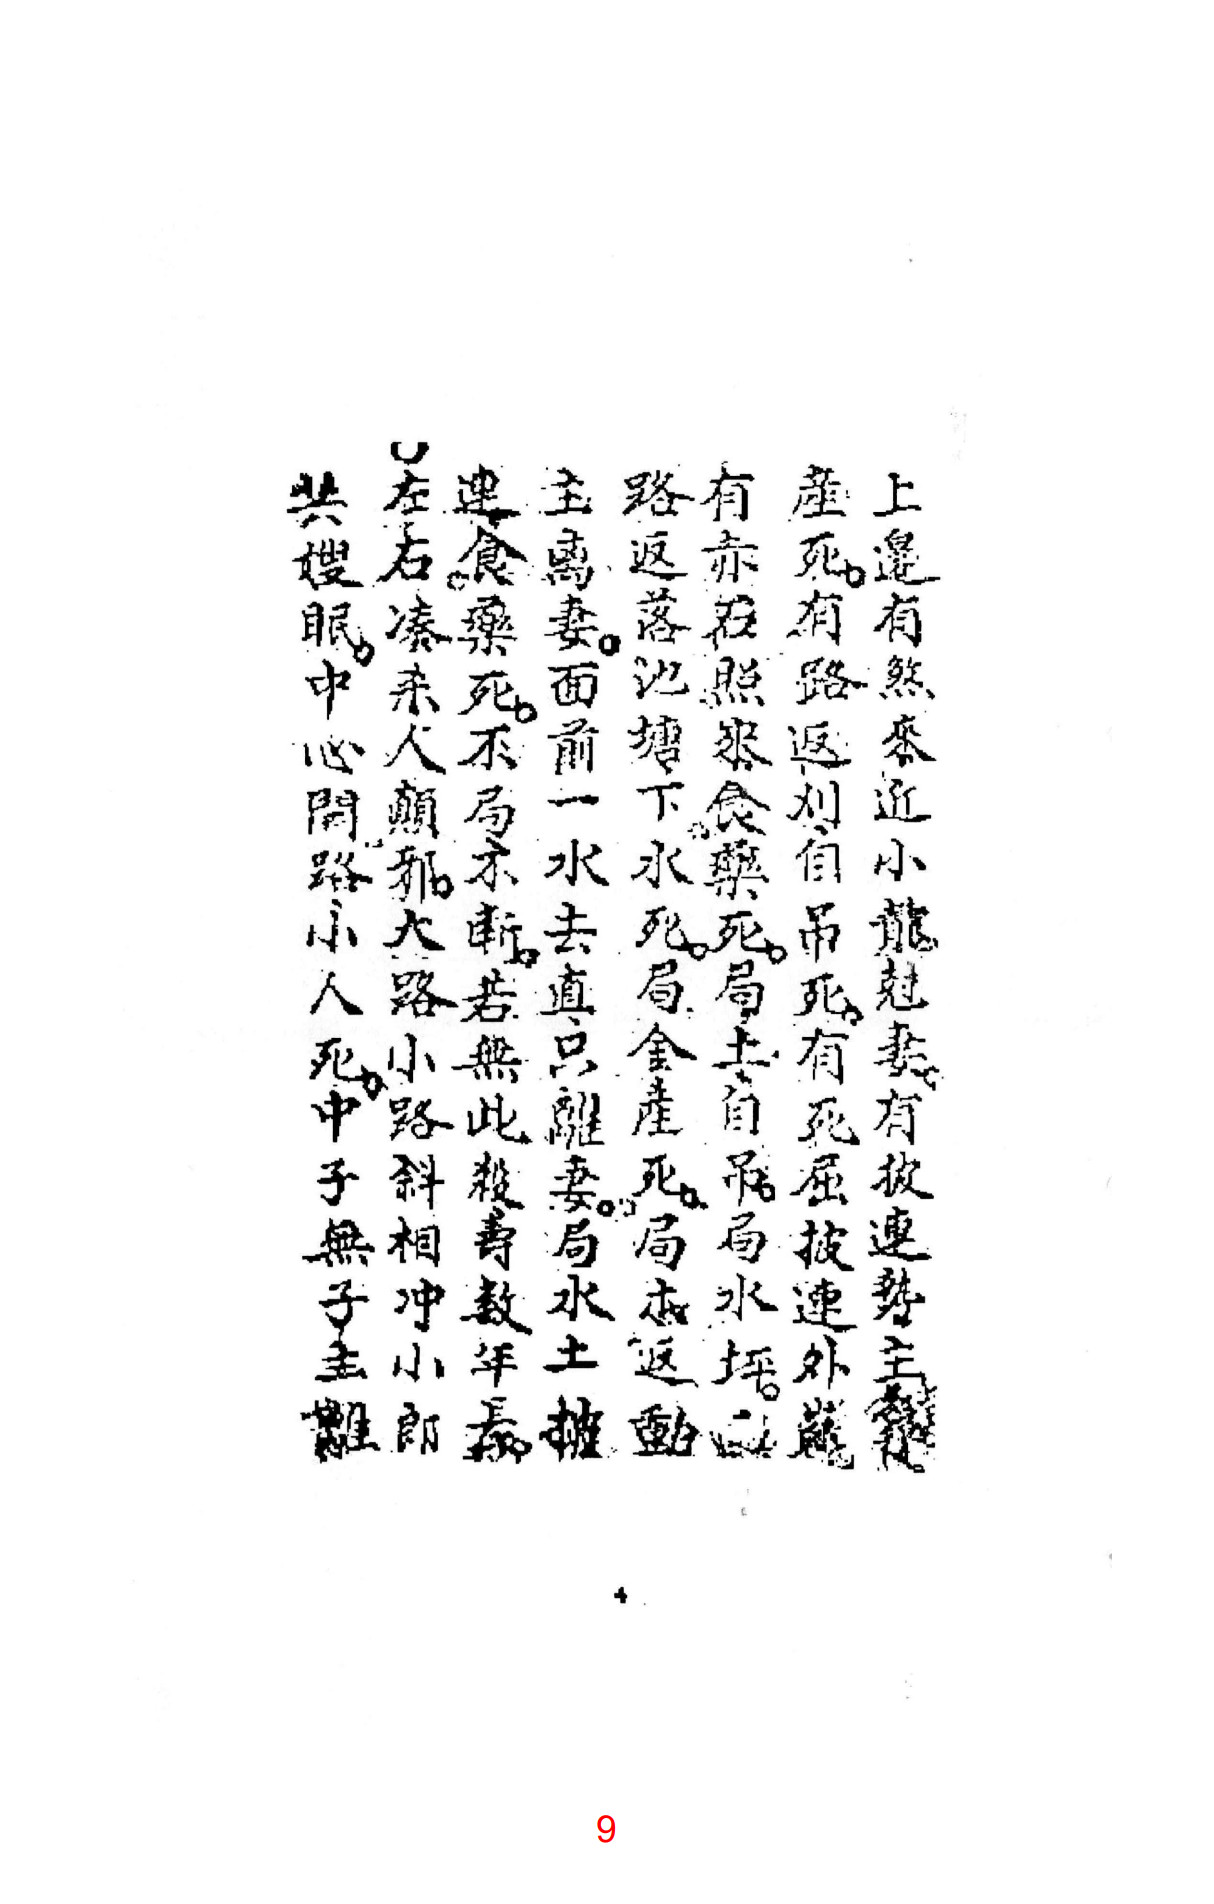 上邉有煞來近小龍尅妻。有披連勢主
產死。有路返刈自吊死。有死屈披連外
有赤石照來食藥死。局土自吊。局水坪。
路返落氿塘下水死。局金產死。局木返動
主离妻。面前一水去真只離妻。局水土
連食藥死。不局不斬。若無此殺壽數年長
左右凑来人顛邪。大路小路斜相冲小郎
共嫂眠。中心閙路小人死。中子無子主離
4
9